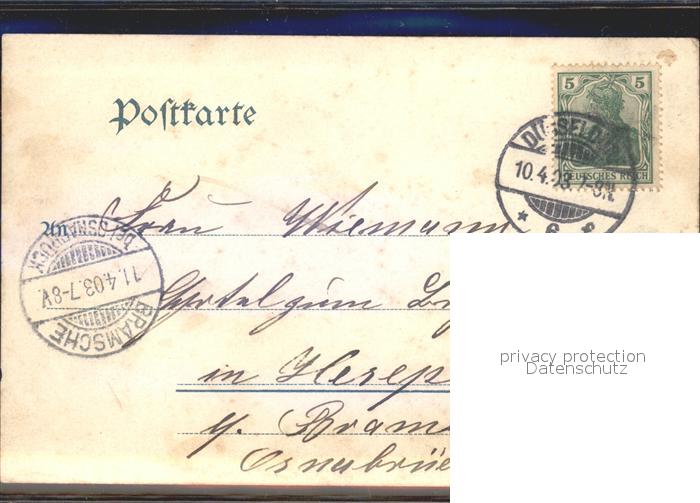 Postkarte
5 5
DEUTSCHES REICH
DÜSSELDORF
10.4.03. 7-8N.
* 6 c
An Frau Wiemann
BRAMSCHE
11.4.03. 7-8V.
Bz. OSNABRÜCK
in Hesep
Bram
Osnabrüc
privacy protection
Datenschutz